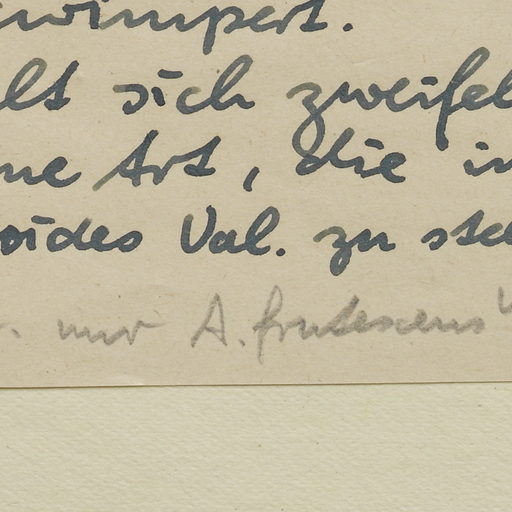 wimpert.
lt sich zweifel
ne Art, die in
oides Val. zu ste
. nur A. frutescens